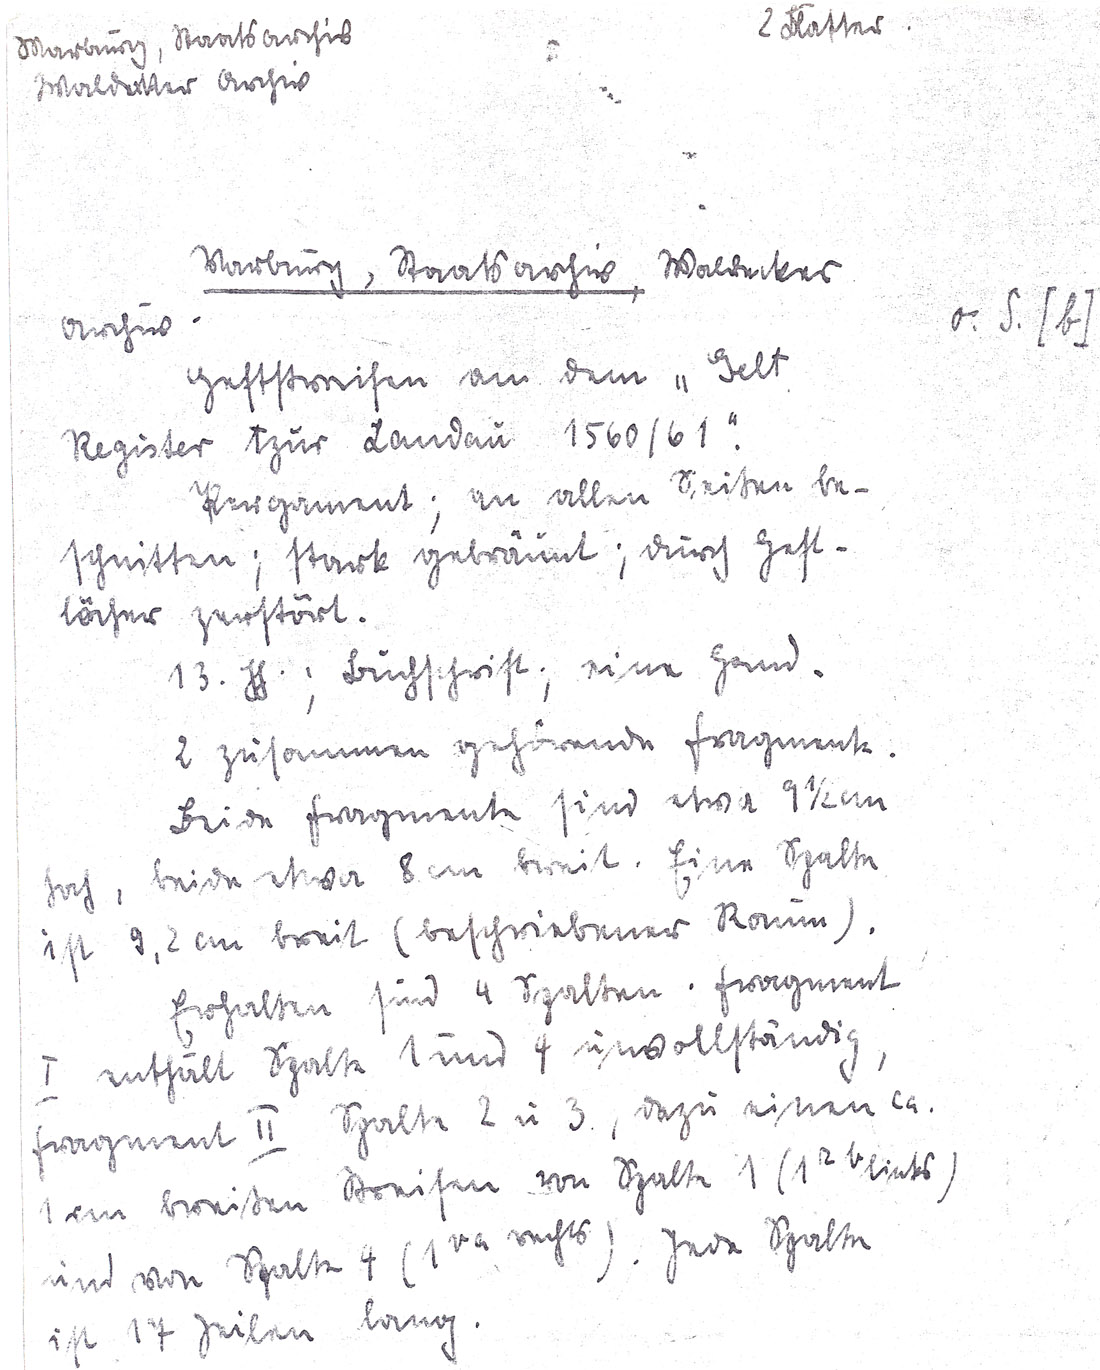 Marburg, Staatsarchiv
2 Blätter.
Waldecker Archiv
Marburg, Staatsarchiv, Waldecker
Archiv.
o. S. [b]
Heftstreifen an dem „Gelt
Register tzur Landau 1560/61".
Pergament; an allen Seiten be-
schnitten; stark gebräunt; durch Heft-
löcher zerstört.
13. Jh.; Buchschrift; eine Hand.
2 zusammen gehörende Fragmente.
Beide Fragmente sind etwa 9½cm
hoch, beide etwa 8cm breit. Eine Spalte
ist 9,2cm breit (beschriebener Raum).
Erhalten sind 4 Spalten. Fragment
I enthält Spalte 1 und 4 unvollständig,
Fragment II Spalte 2 u 3., dazu einen ca.
1cm breiten Streifen von Spalte 1 (1rb links)
und von Spalte 4 (1va rechts). Jede Spalte
ist 17 Zeilen lang.